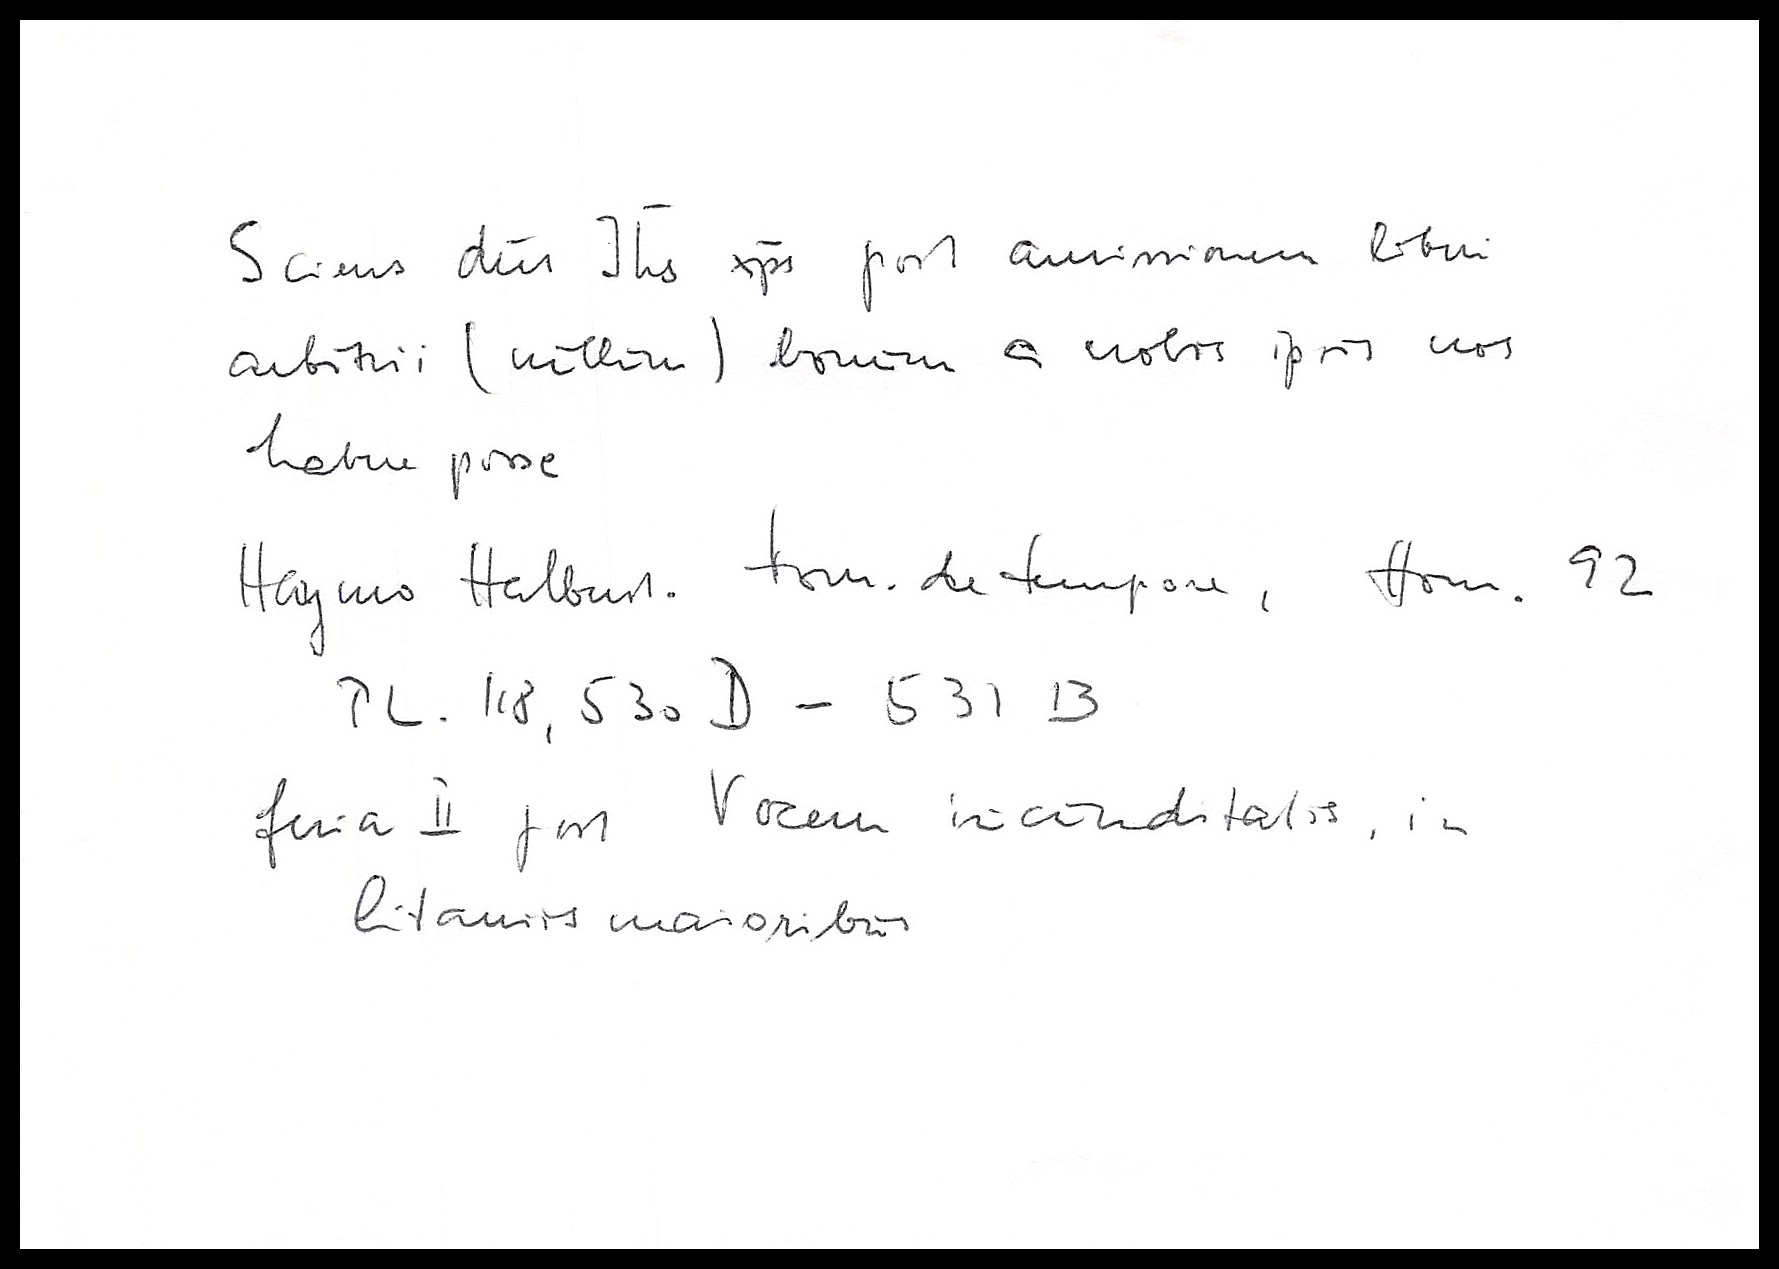 Sciens dns Ihs xps post amissionem liberi
arbitrii (nullum) bonum a nobis ipsis nos
habere posse
Haymo Halberst. hom. de tempore, Hom. 92
PL. 118, 530 D - 531 B
feria II post Vocem iucunditatis, in
litaniis maioribus